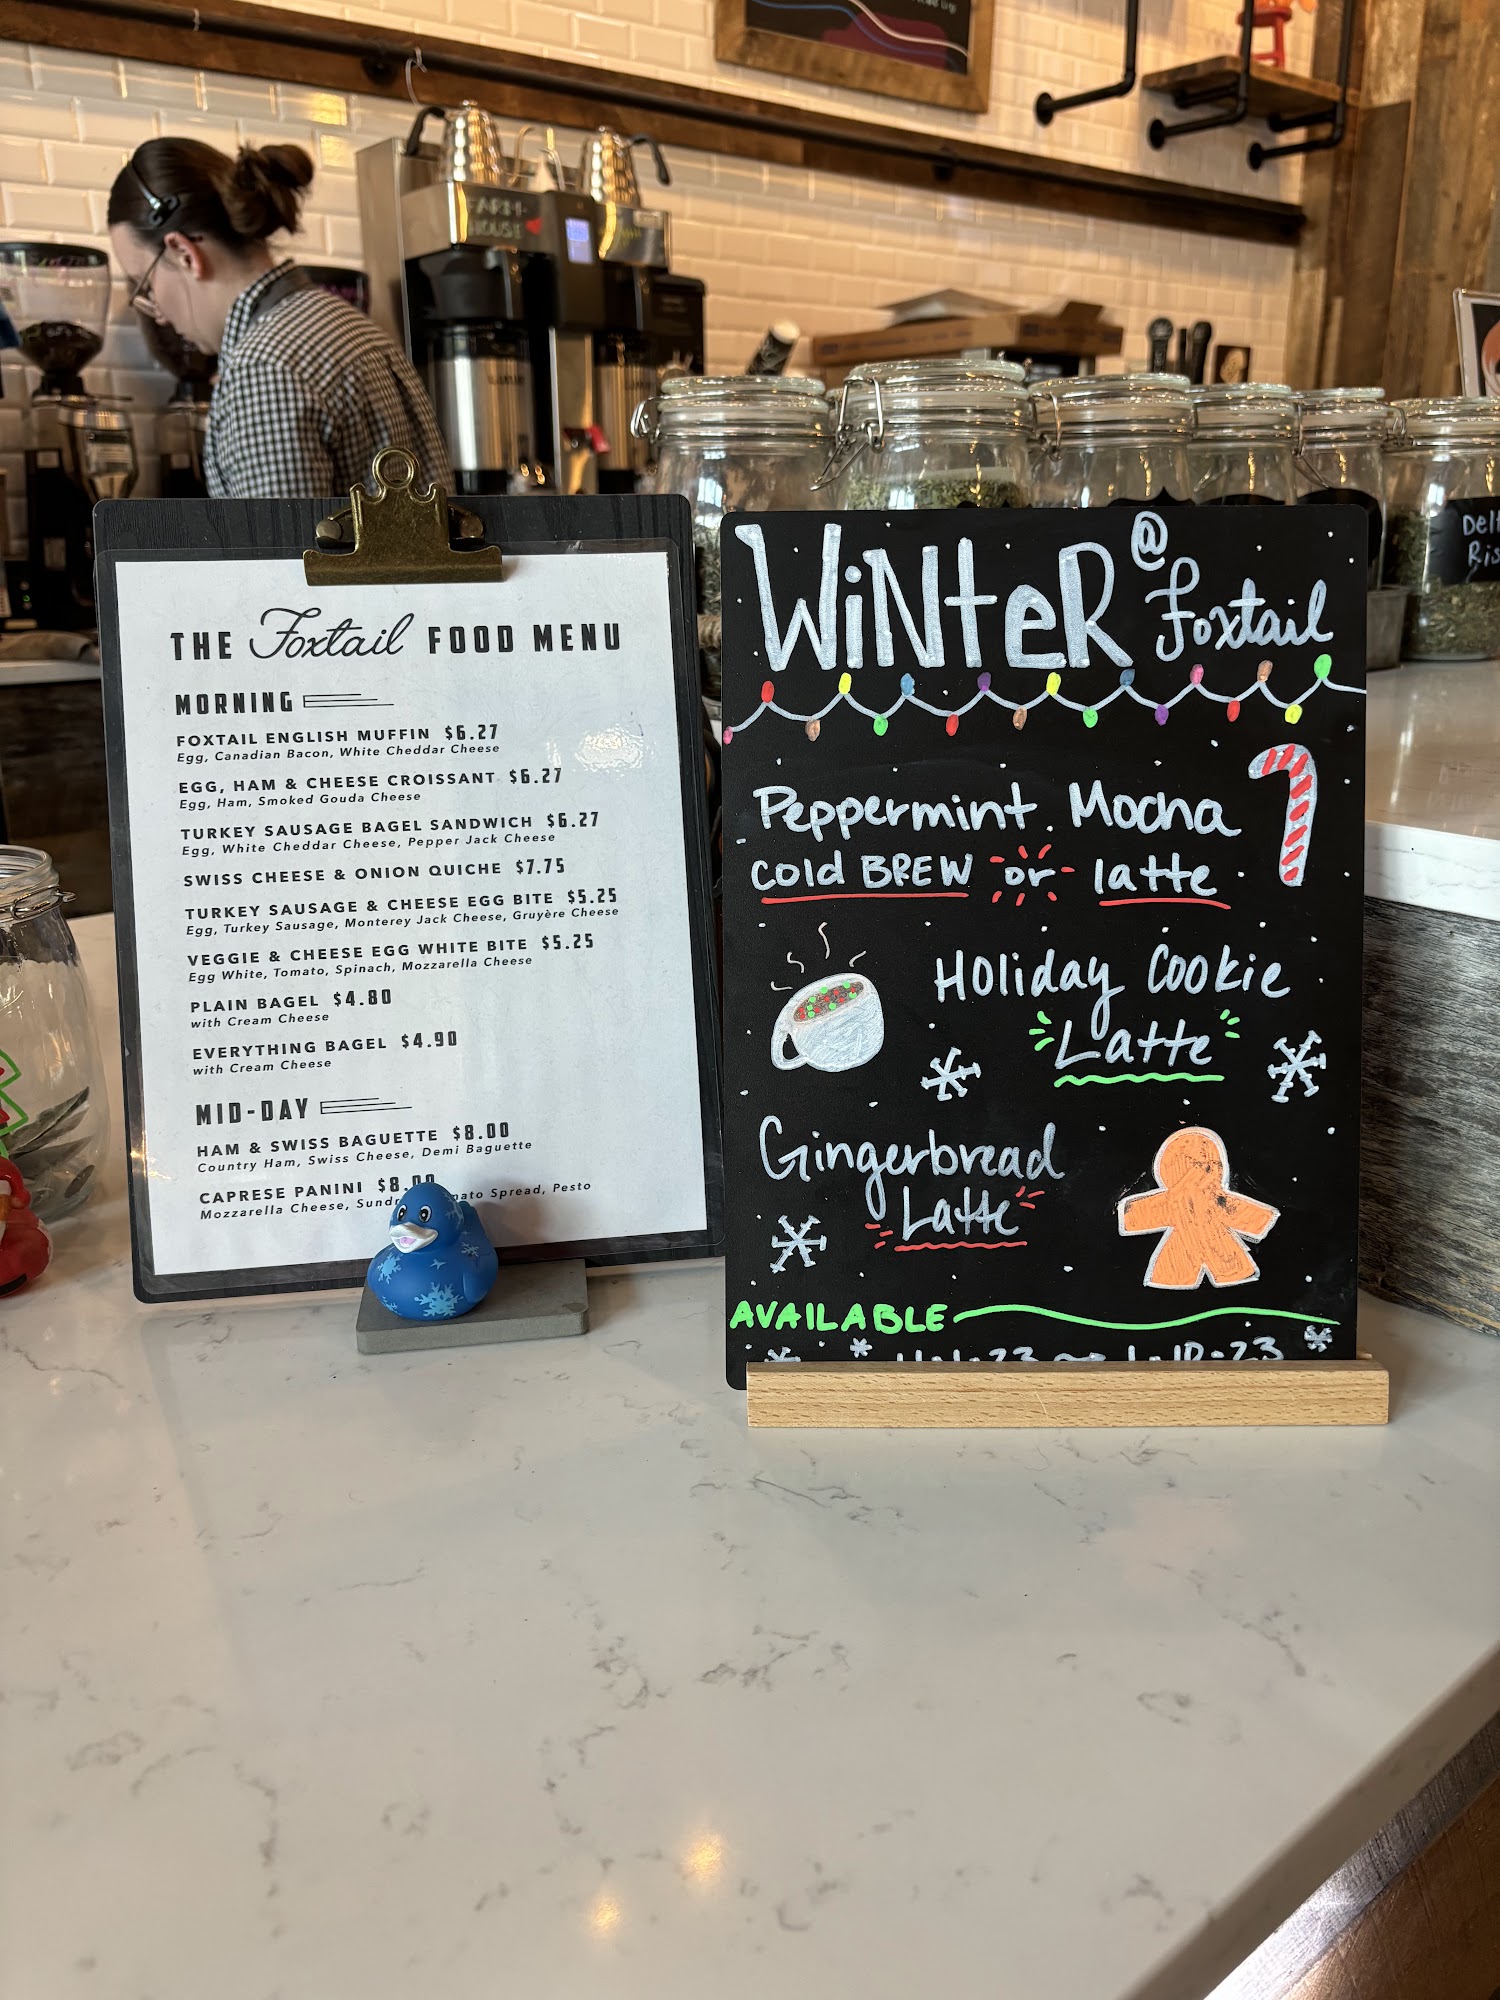 THE Foxtail FOOD MENU
MORNING
FOXTAIL ENGLISH MUFFIN $6.27
Egg, Canadian Bacon, White Cheddar Cheese
EGG, HAM & CHEESE CROISSANT $6.27
Egg, Ham, Smoked Gouda Cheese
TURKEY SAUSAGE BAGEL SANDWICH $6.27
Egg, White Cheddar Cheese, Pepper Jack Cheese
SWISS CHEESE & ONION QUICHE $7.75
TURKEY SAUSAGE & CHEESE EGG BITE $5.25
Egg, Turkey Sausage, Monterey Jack Cheese, Gruyère Cheese
VEGGIE & CHEESE EGG WHITE BITE $5.25
Egg White, Tomato, Spinach, Mozzarella Cheese
PLAIN BAGEL $4.80
with Cream Cheese
EVERYTHING BAGEL $4.90
with Cream Cheese
MID-DAY
HAM & SWISS BAGUETTE $8.00
Country Ham, Swiss Cheese, Demi Baguette
CAPRESE PANINI $8.00
Mozzarella Cheese, Spread, Pesto
WiNteR @ Foxtail
Peppermint Mocha
cold BREW or latte
Holiday Cookie
Latte
Gingerbread
Latte
AVAILABLE
FARM-
HOUSE